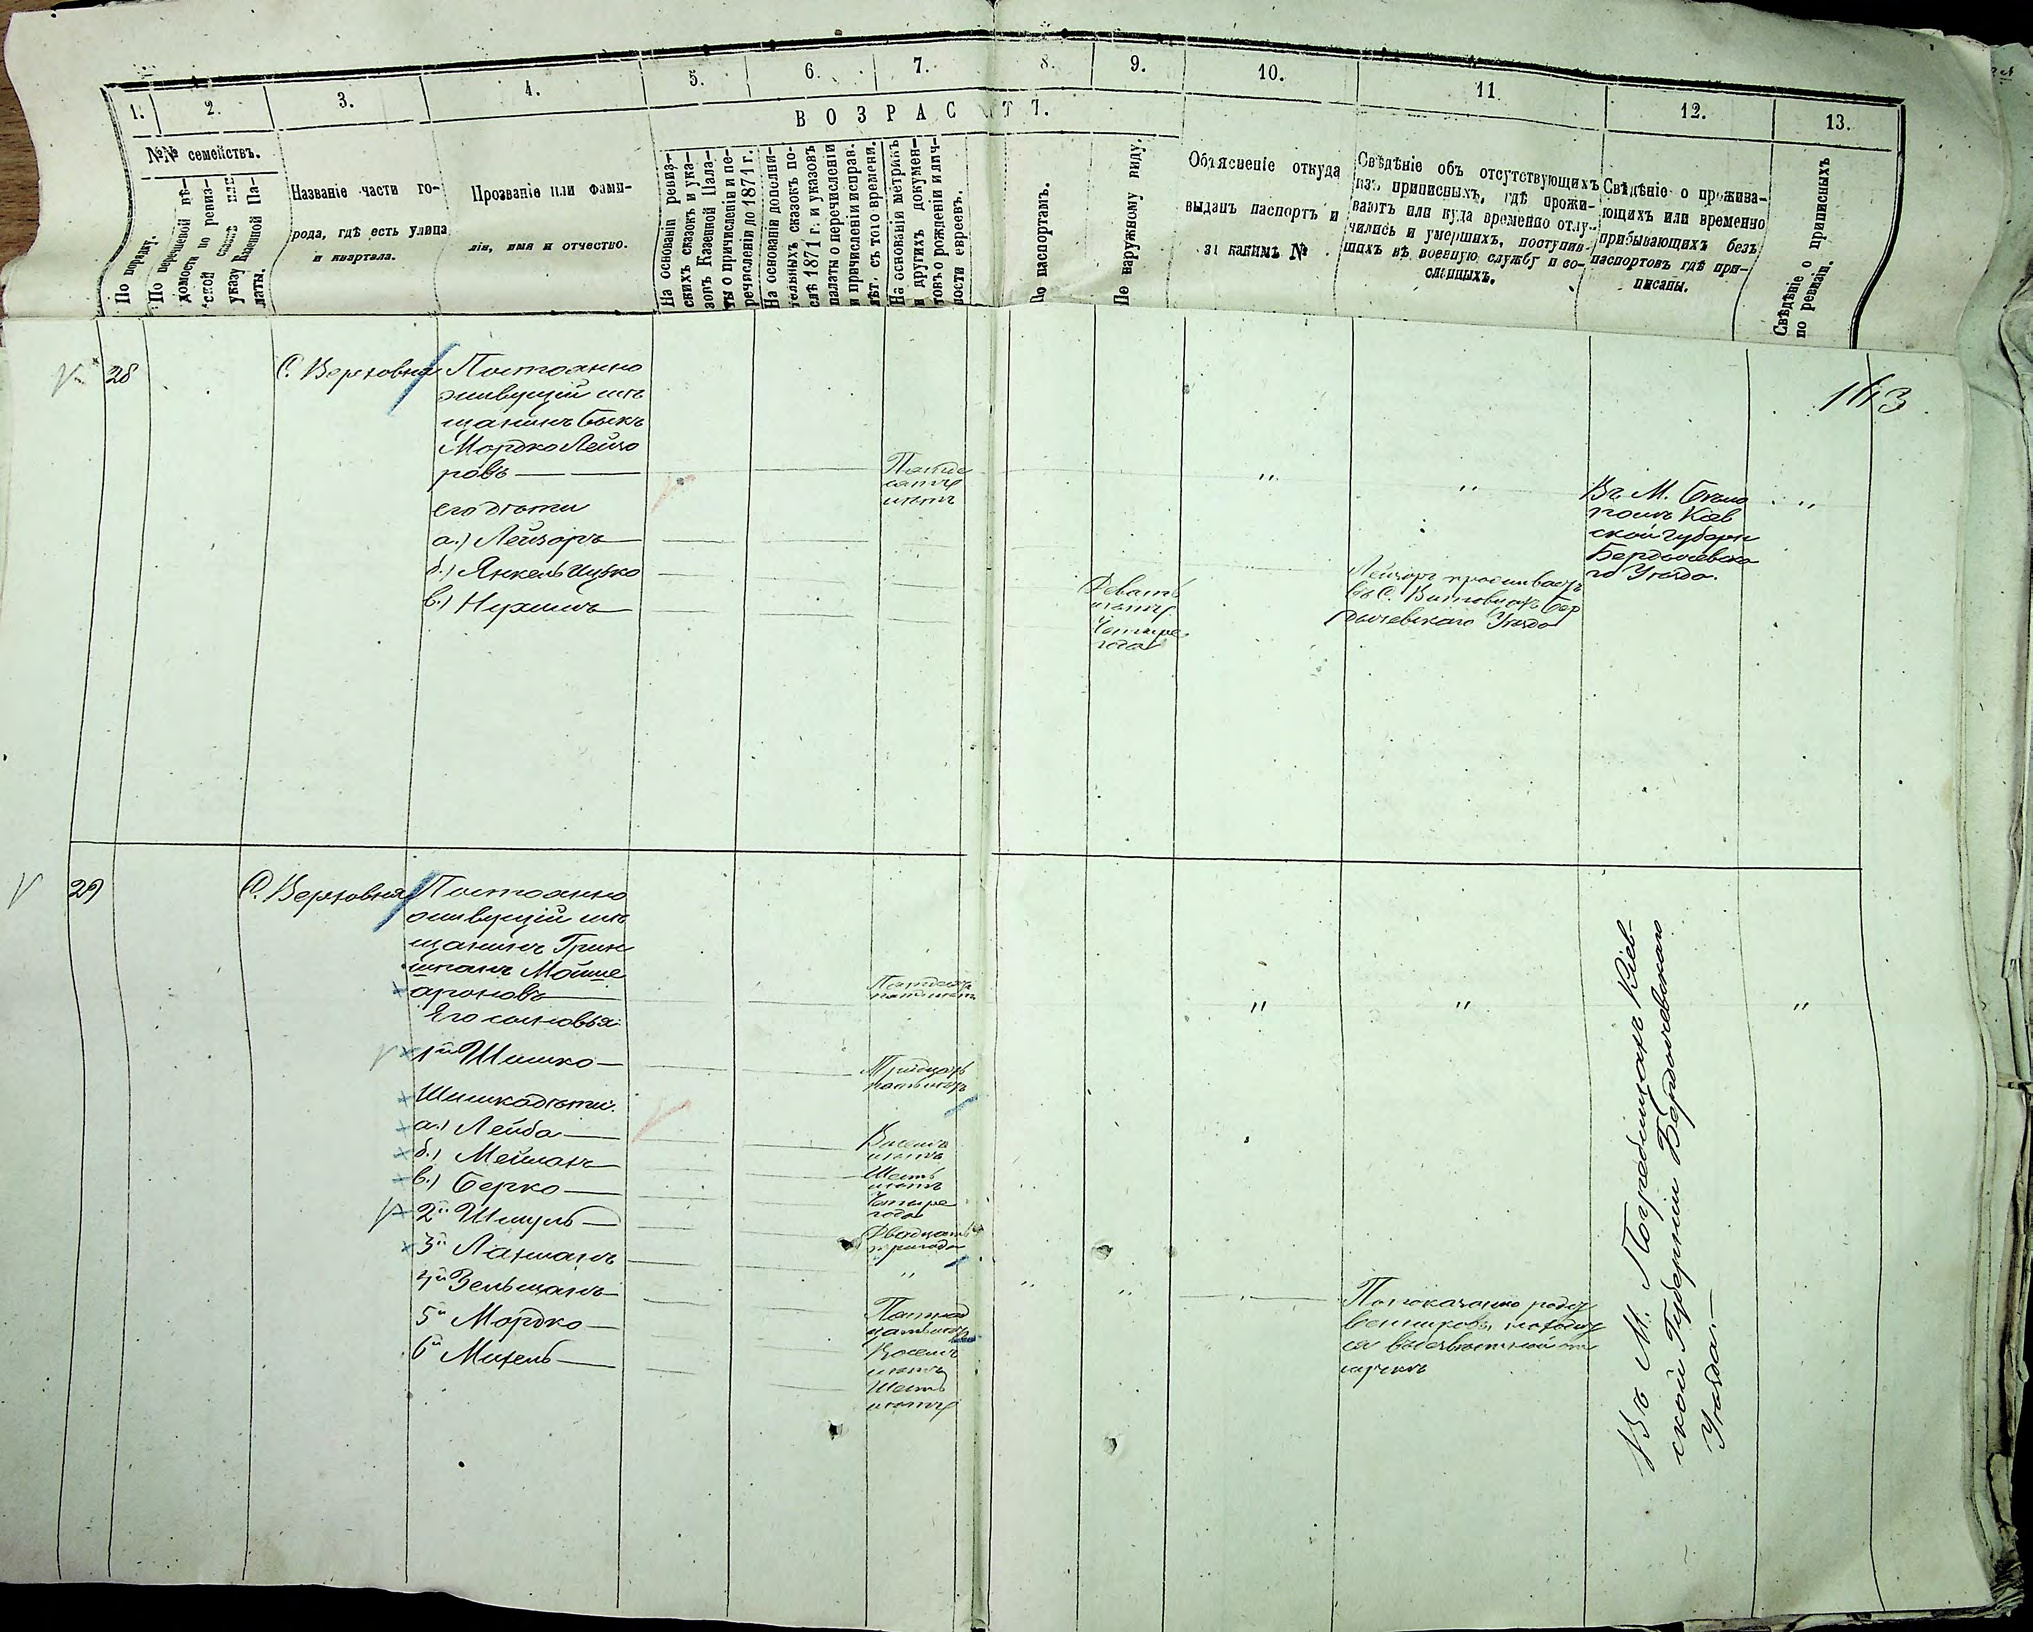 1.
2.
3.
4.
5.
6.
7.
8.
9.
10.
11.
12.
13.
В О З Р А С Т Ъ.
№№ семействъ.
По порядку.
По перешевой вѣ-
домости по ревиз-
ской сказкѣ или
указу Казенной Па-
латы.
Названіе части го-
рода, гдѣ есть улица
и квартала.
Прозваніе или фами-
лія, имя и отчество.
На основаніи ревиз-
скихъ сказокъ и ука-
зовъ Казенной Пала-
ты о причисленіи и пе-
речисленіи до 1871 г.
На основаніи дополни-
тельныхъ сказокъ по-
слѣ 1871 г. и указовъ
палаты о перечисленіи
и причисленіи исправ.
лѣт. съ того времени.
На основаніи метрикъ
и другихъ докумен-
товъ о рожденіи и лич-
ности евреевъ.
По паспортамъ.
По наружному виду.
Объясненіе откуда
выданъ паспортъ и
за какимъ №
Свѣдѣніе объ отсутствующихъ
изъ приписныхъ, гдѣ прожи-
ваютъ или куда временно отлу-
чились и умершихъ, поступив-
шихъ въ военную службу и со-
сланныхъ.
Свѣдѣніе о прожива-
ющихъ или временно
прибывающихъ безъ
паспортовъ гдѣ при-
писаны.
Свѣдѣніе о приписныхъ
по ревизіи.
28
С. Верховня
Постоянно
живущій мѣ
щанинъ Быкъ
Мордко Лейзо
ровъ
его дѣти
а.) Лейзоръ
б.) Янкель Ицько
в.) Нухимъ
Пятьде
сятъ
лѣтъ
Девять
лѣтъ
Четыре
года
"
"
Лейзоръ проживаетъ
въ С. Бер
дичевскаго Уѣзда
Въ М. Бѣло
полѣ Кіев
ской губерн
Бердичевска
го Уѣзда.
"
143
29
С. Верховня
Постоянно
живущій мѣ
щанинъ Грин
шпанъ Мошие
ароновъ
Его сыновья
1й Шишко
Шишка дѣти.
а.) Лейба
б.) Мейлахъ
в.) Берко
2й Шмуль
3й Лахманъ
4й Зельманъ
5й Мордко
6й Михель
Пятьдесятъ
пять лѣтъ
Тридцать
пять лѣтъ
Восемь
лѣтъ
Шесть
лѣтъ
Четыре
года
Двадцать
три года
"
Пятнад
цать лѣтъ
Восемь
лѣтъ
Шесть
лѣтъ
"
"
"
"
"
"
По показанію родст
венниковъ, находит
ся въ безвѣстной от
лучкѣ
Въ М. Погребищахъ Кіев-
ской Губерніи Бердичевскаго
Уѣзда.